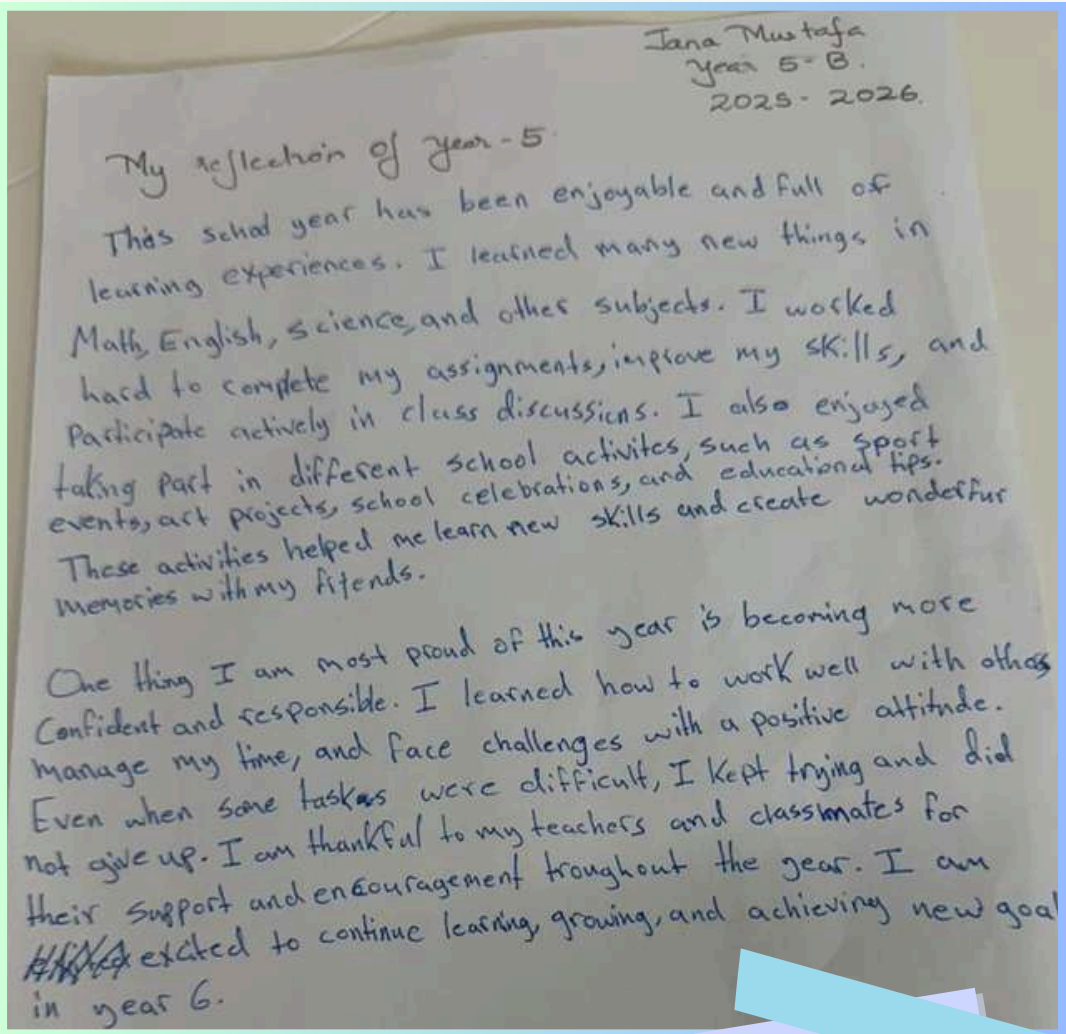 Jana Mustafa
Year 5-B.
2025-2026.
My reflection of year-5
This schol year has been enjoyable and full of
learning experiences. I learned many new things in
Math, English, science, and other subjects. I worked
hard to complete my assignments, improve my skills, and
Participate actively in class discussions. I also enjoyed
taking part in different school activites, such as sport
events, art projects, school celebrations, and educational tips.
These activities helped me learn new skills and create wonderfur
memories with my friends.
One thing I am most proud of this year is becoming more
Confident and responsible. I learned how to work well with others
manage my time, and face challenges with a positive attitude.
Even when some tasks were difficult, I kept trying and did
not give up. I am thankful to my teachers and classmates for
their support and encouragement troughout the year. I am
exited to continue learning, growing, and achieving new goal
in year 6.